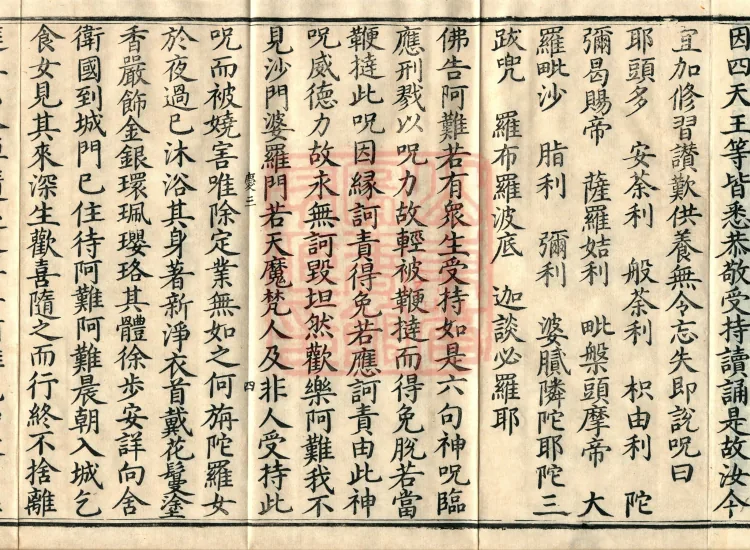 因四天王等皆悉恭敬受持讀誦是故汝今
宜加修習讃歎供養無令忘失即說呪曰
耶頭多 安荼利 般荼利 枳由利 陀
彌曷賜帝 薩羅姞利 毗槃頭摩帝 大
羅毗沙 脂利 彌利 婆膩隣陀耶陀三
跋兜 羅布羅波底 迦談必羅耶
佛告阿難若有衆生受持如是六句神呪臨
應刑戮以呪力故輕被鞭撻而得免脫若當
鞭撻此呪因緣訶責得免若應訶責由此神
呪威德力故永無訶毀坦然歡樂阿難我不
見沙門婆羅門若天魔梵人及非人受持此
慶三 四
呪而被嬈害唯除定業無如之何旃陀羅女
於夜過已沐浴其身著新淨衣首戴花鬘塗
香嚴飾金銀環珮瓔珞其體徐步安詳向舍
衛國到城門已住待阿難阿難晨朝入城乞
食女見其來深生歡喜隨之而行終不捨離